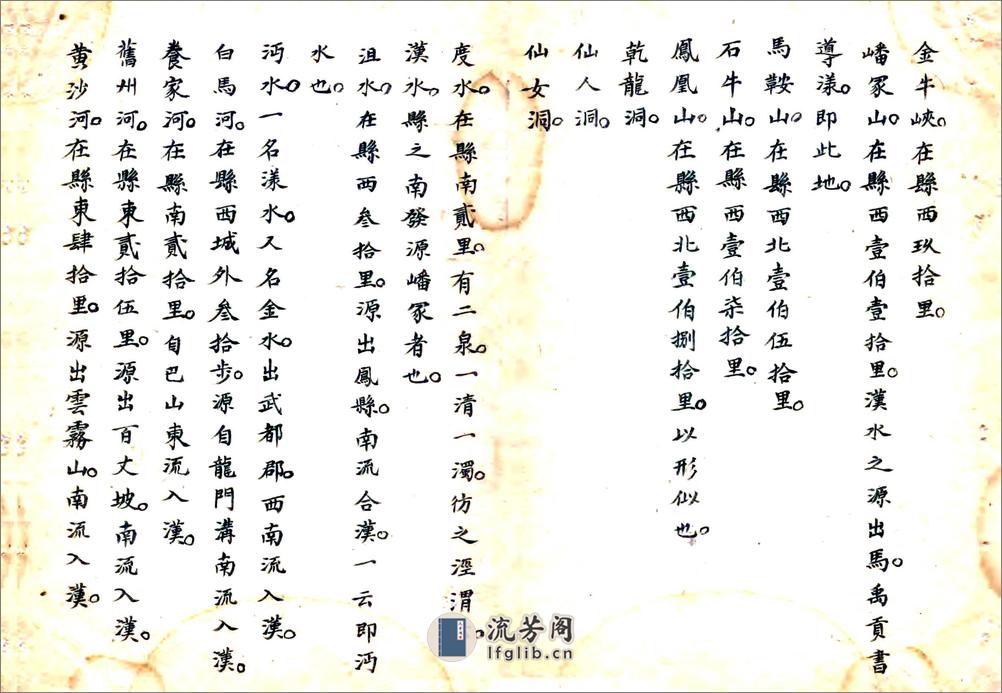 金牛峽。在縣西玖拾里。
嶓冢山。在縣西壹伯壹拾里。漢水之源出馬。禹貢書
導漾。即此地。
馬鞍山。在縣西北壹伯伍拾里。
石牛山。在縣西壹伯柒拾里。
鳳凰山。在縣西北壹伯捌拾里。以形似也。
乾龍洞。
仙人洞。
仙女洞。
度水。在縣南貳里。有二泉。一清一濁。彷之涇渭。
漢水。縣之南發源嶓冢者也。
沮水。在縣西叁拾里。源出鳳縣。南流合漢。一云即沔
水也。
沔水。一名漾水。又名金水。出武都郡。西南流入漢。
白馬河。在縣西城外叁拾步。源自龍門溝南流入漢。
養家河。在縣南貳拾里。自巴山東流入漢。
舊州河。在縣東貳拾伍里。源出百丈坡。南流入漢。
黃沙河。在縣東肆拾里。源出雲霧山。南流入漢。
流芳阁
lfglib.cn